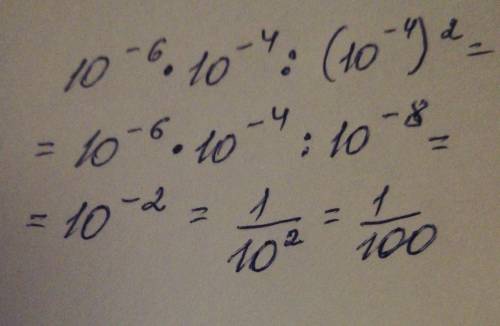 10⁻⁶·10⁻⁴:(10⁻⁴)²=
=10⁻⁶·10⁻⁴:10⁻⁸=
=10⁻²=1/10²=1/100